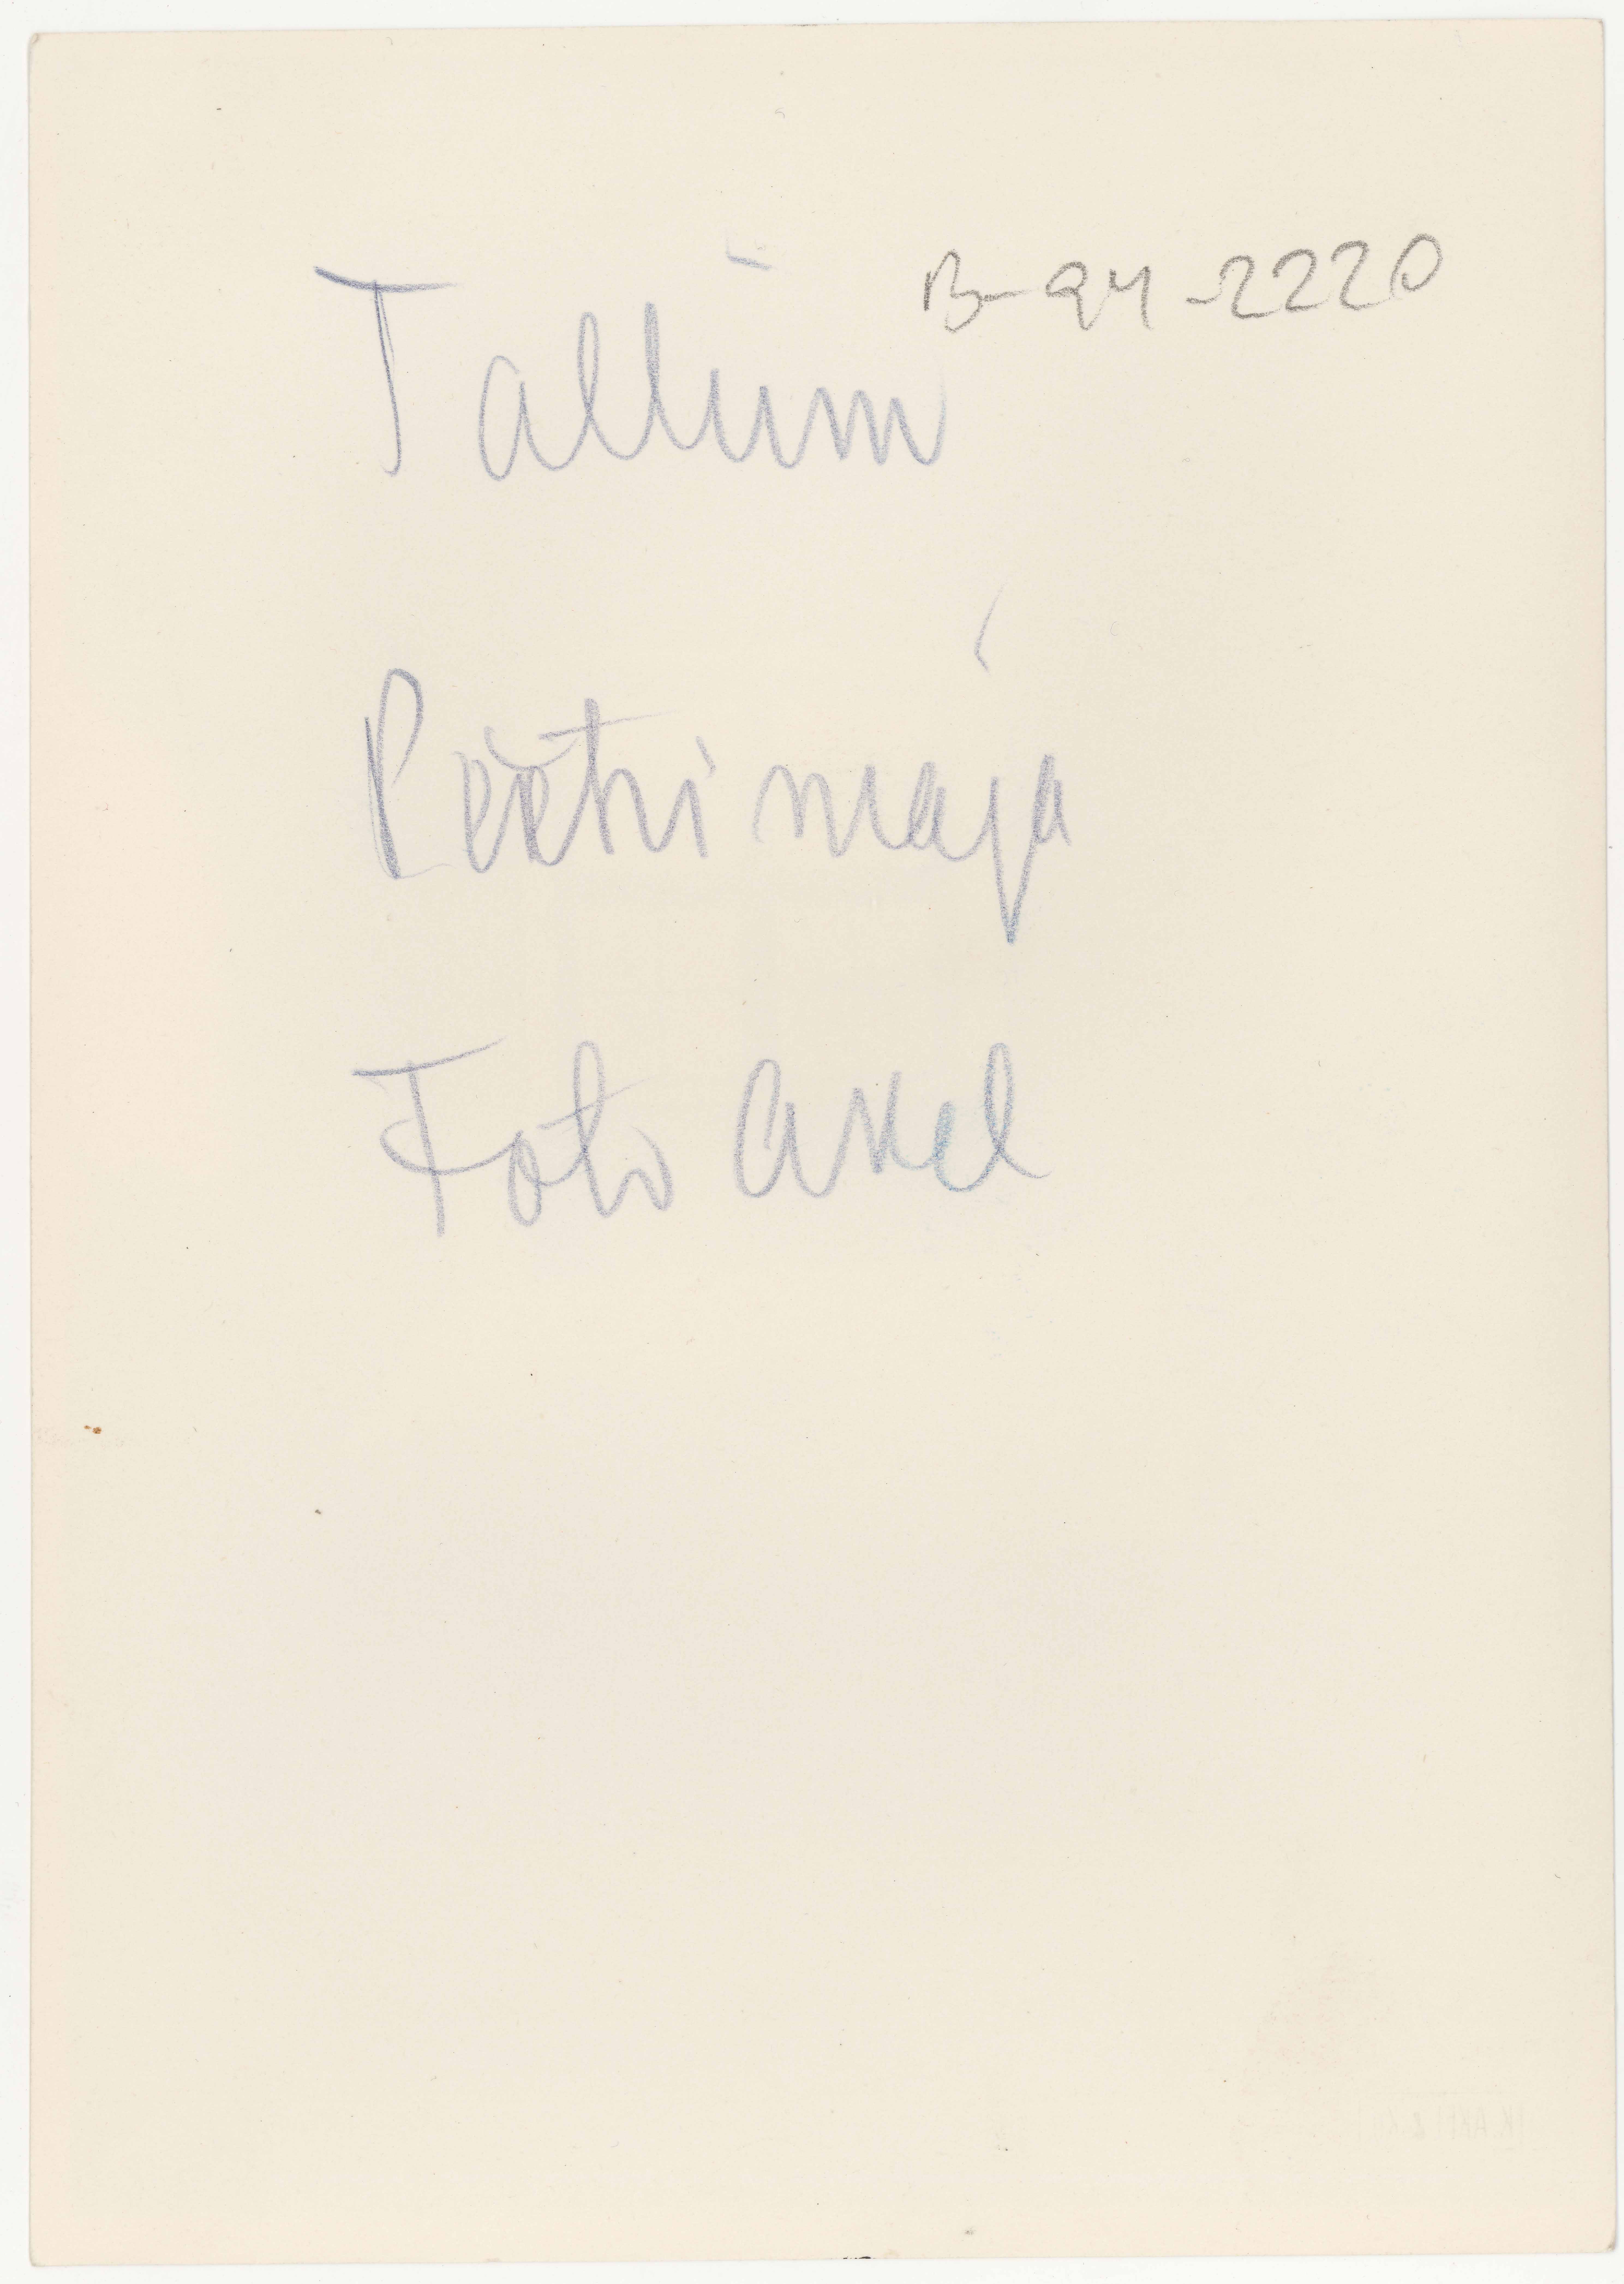 B-94-2220
Tallinn
Peetri maja
Foto Akel